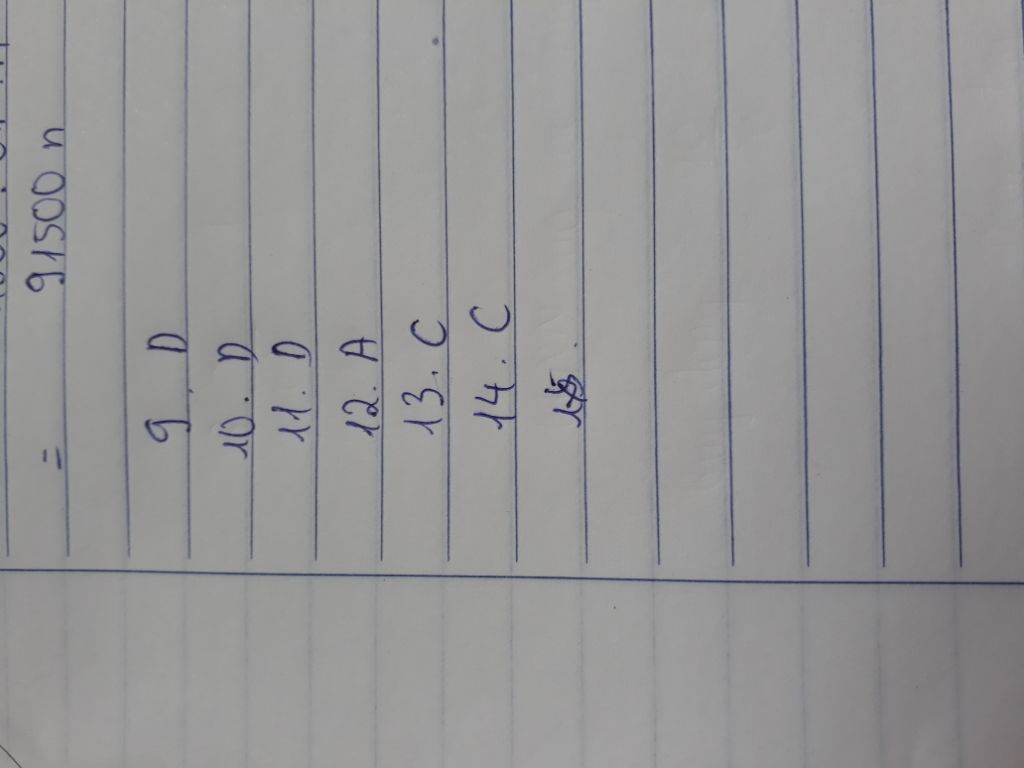 = 91500 n
9. D
10. D
11. D
12. A
13. C
14. C